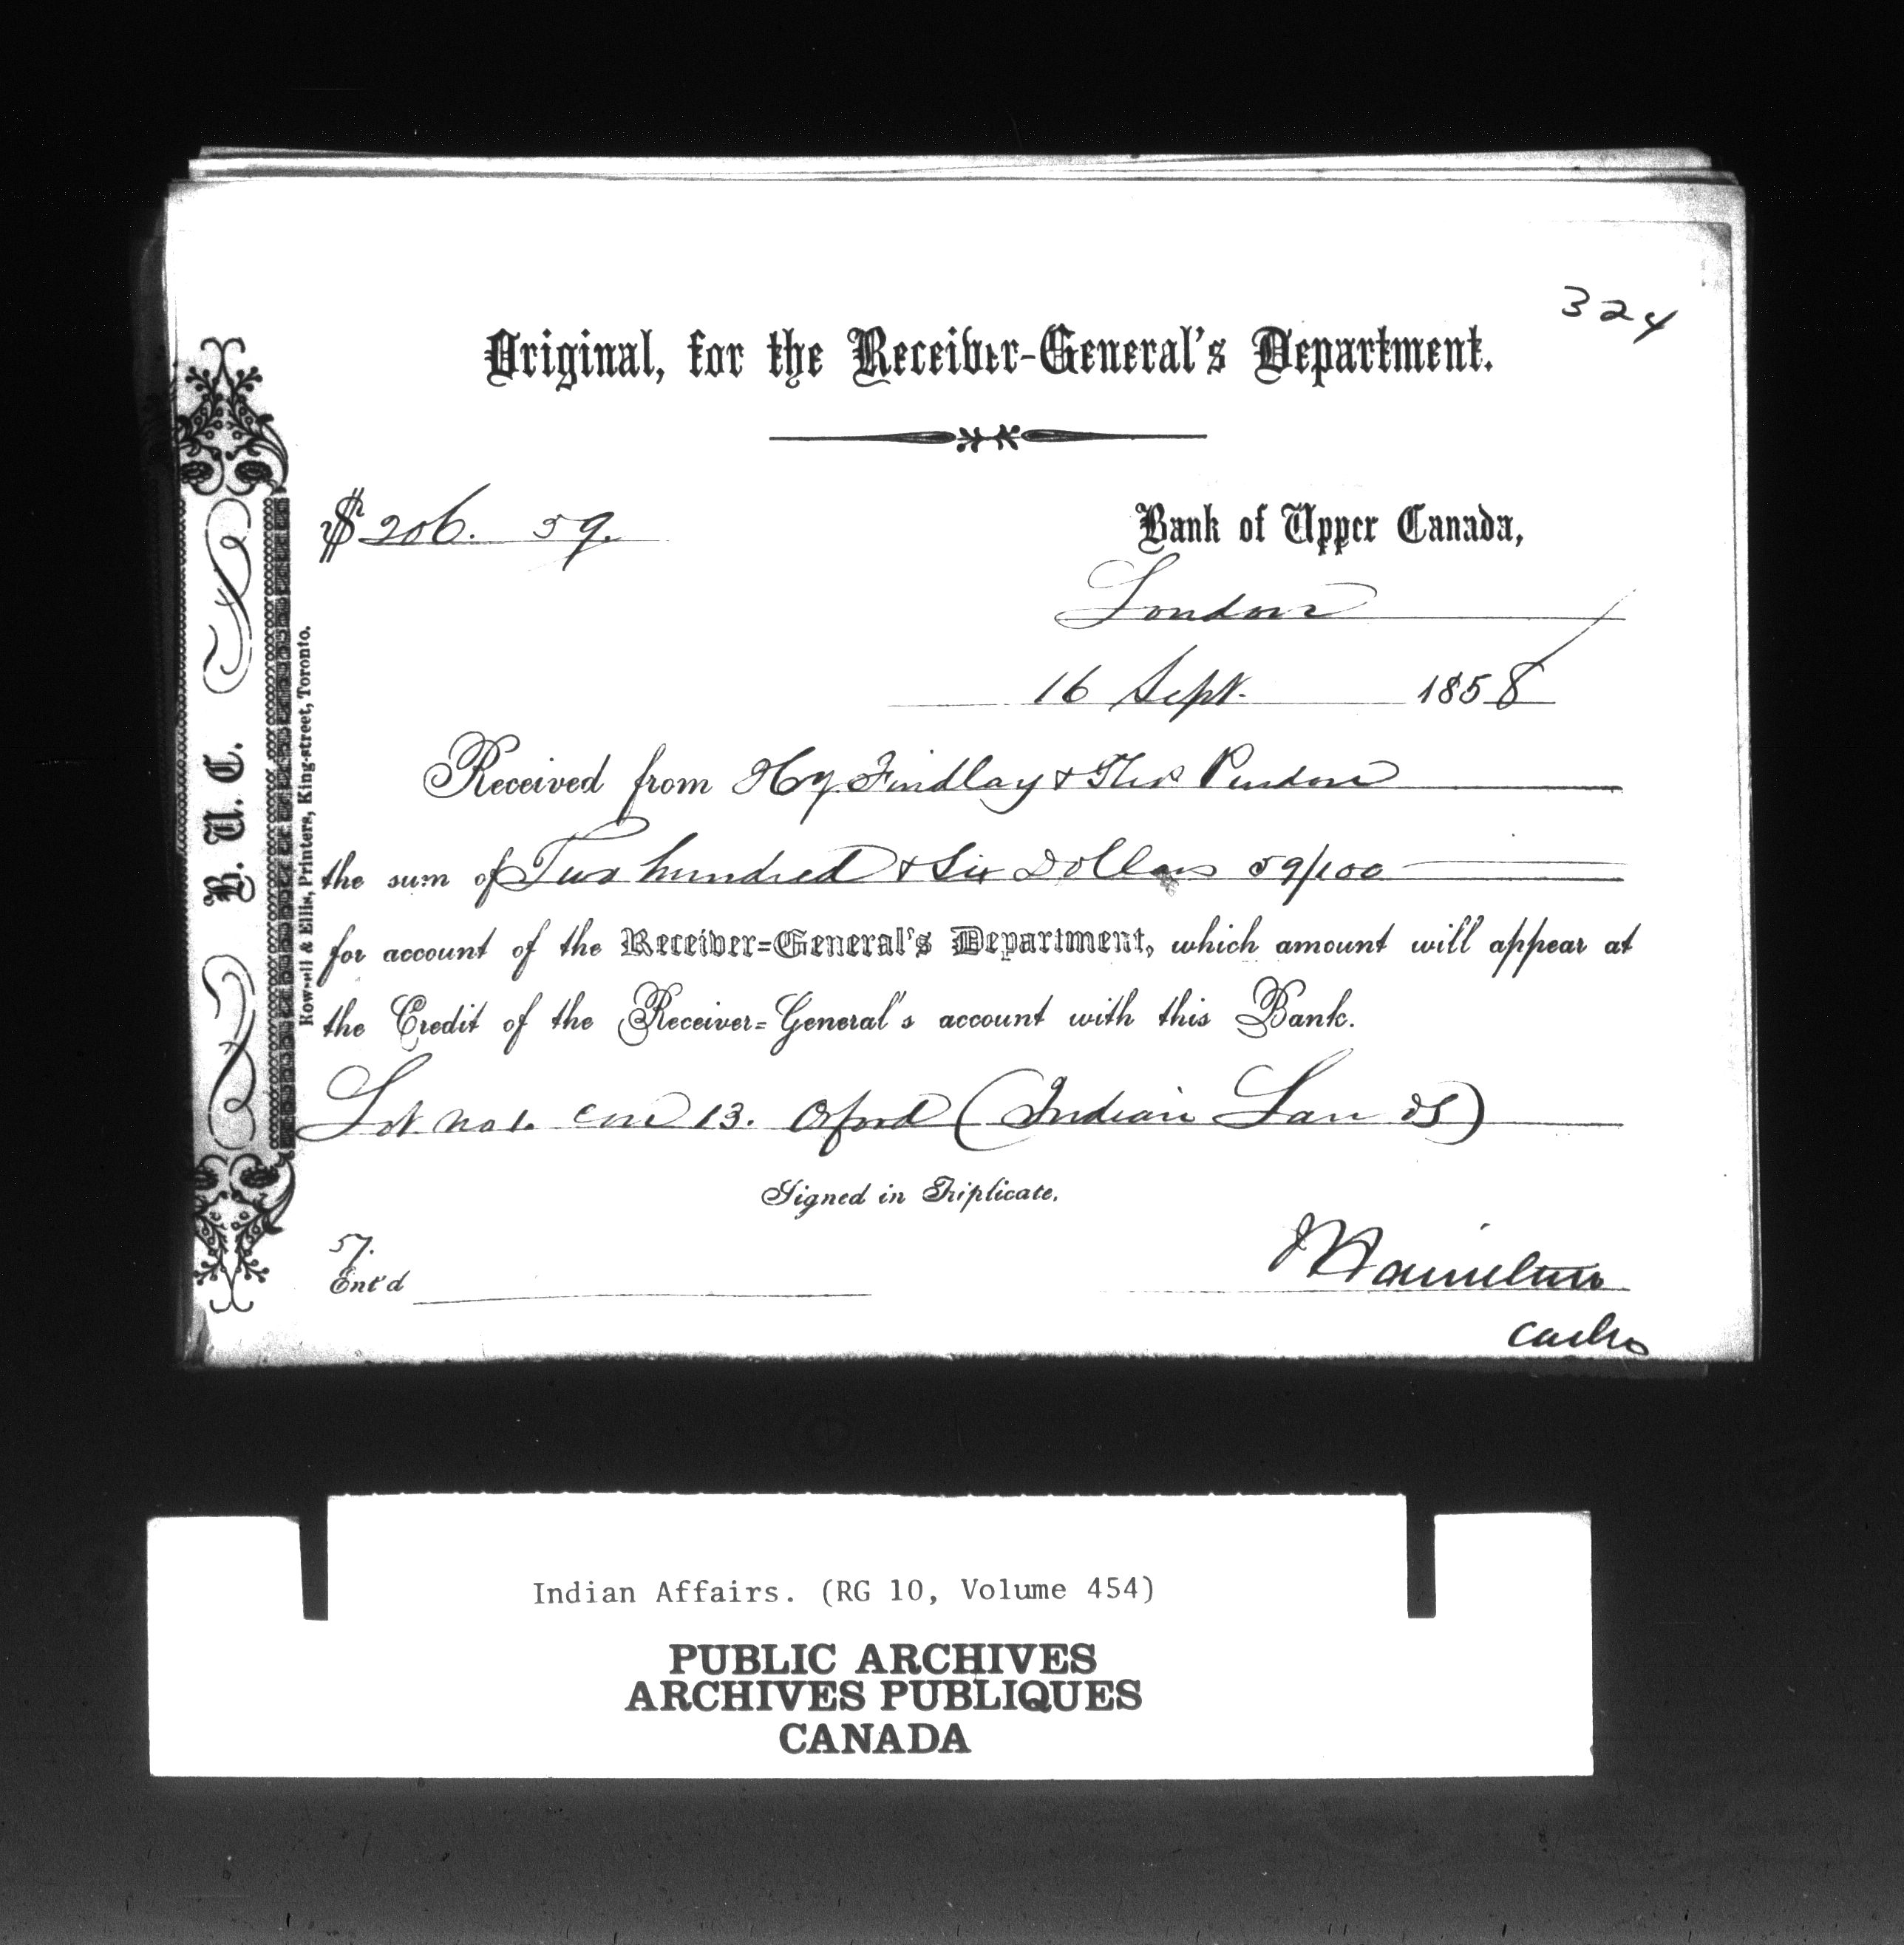 324
Original, for the Receiver-General's Department.
$ 206. 59.
Bank of Upper Canada,
London
16 Sept. 1858
Received from Hy Findlay & Thos Purdom
the sum of Two hundred & Six Dollars 59/100
for account of the Receiver=General's Department, which amount will appear at
the Credit of the Receiver=General's account with this Bank.
Lot no 1. con 13. Orford (Indian Lands)
Signed in Triplicate.
57.
Ent'd
B. U. C.
Rowsell & Ellis, Printers, King-street, Toronto.
Indian Affairs. (RG 10, Volume 454)
PUBLIC ARCHIVES
ARCHIVES PUBLIQUES
CANADA